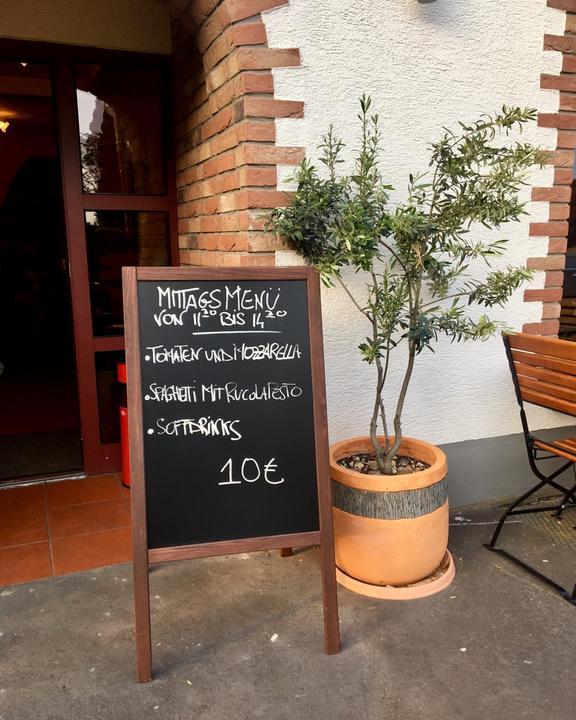 MITTAGSMENÜ
VON 11³⁰ BIS 14³⁰
• TOMATEN UND MOZZARELLA
• SPAGHETI MIT RUCOLAPESTO
• SOFTDRINKS
10€